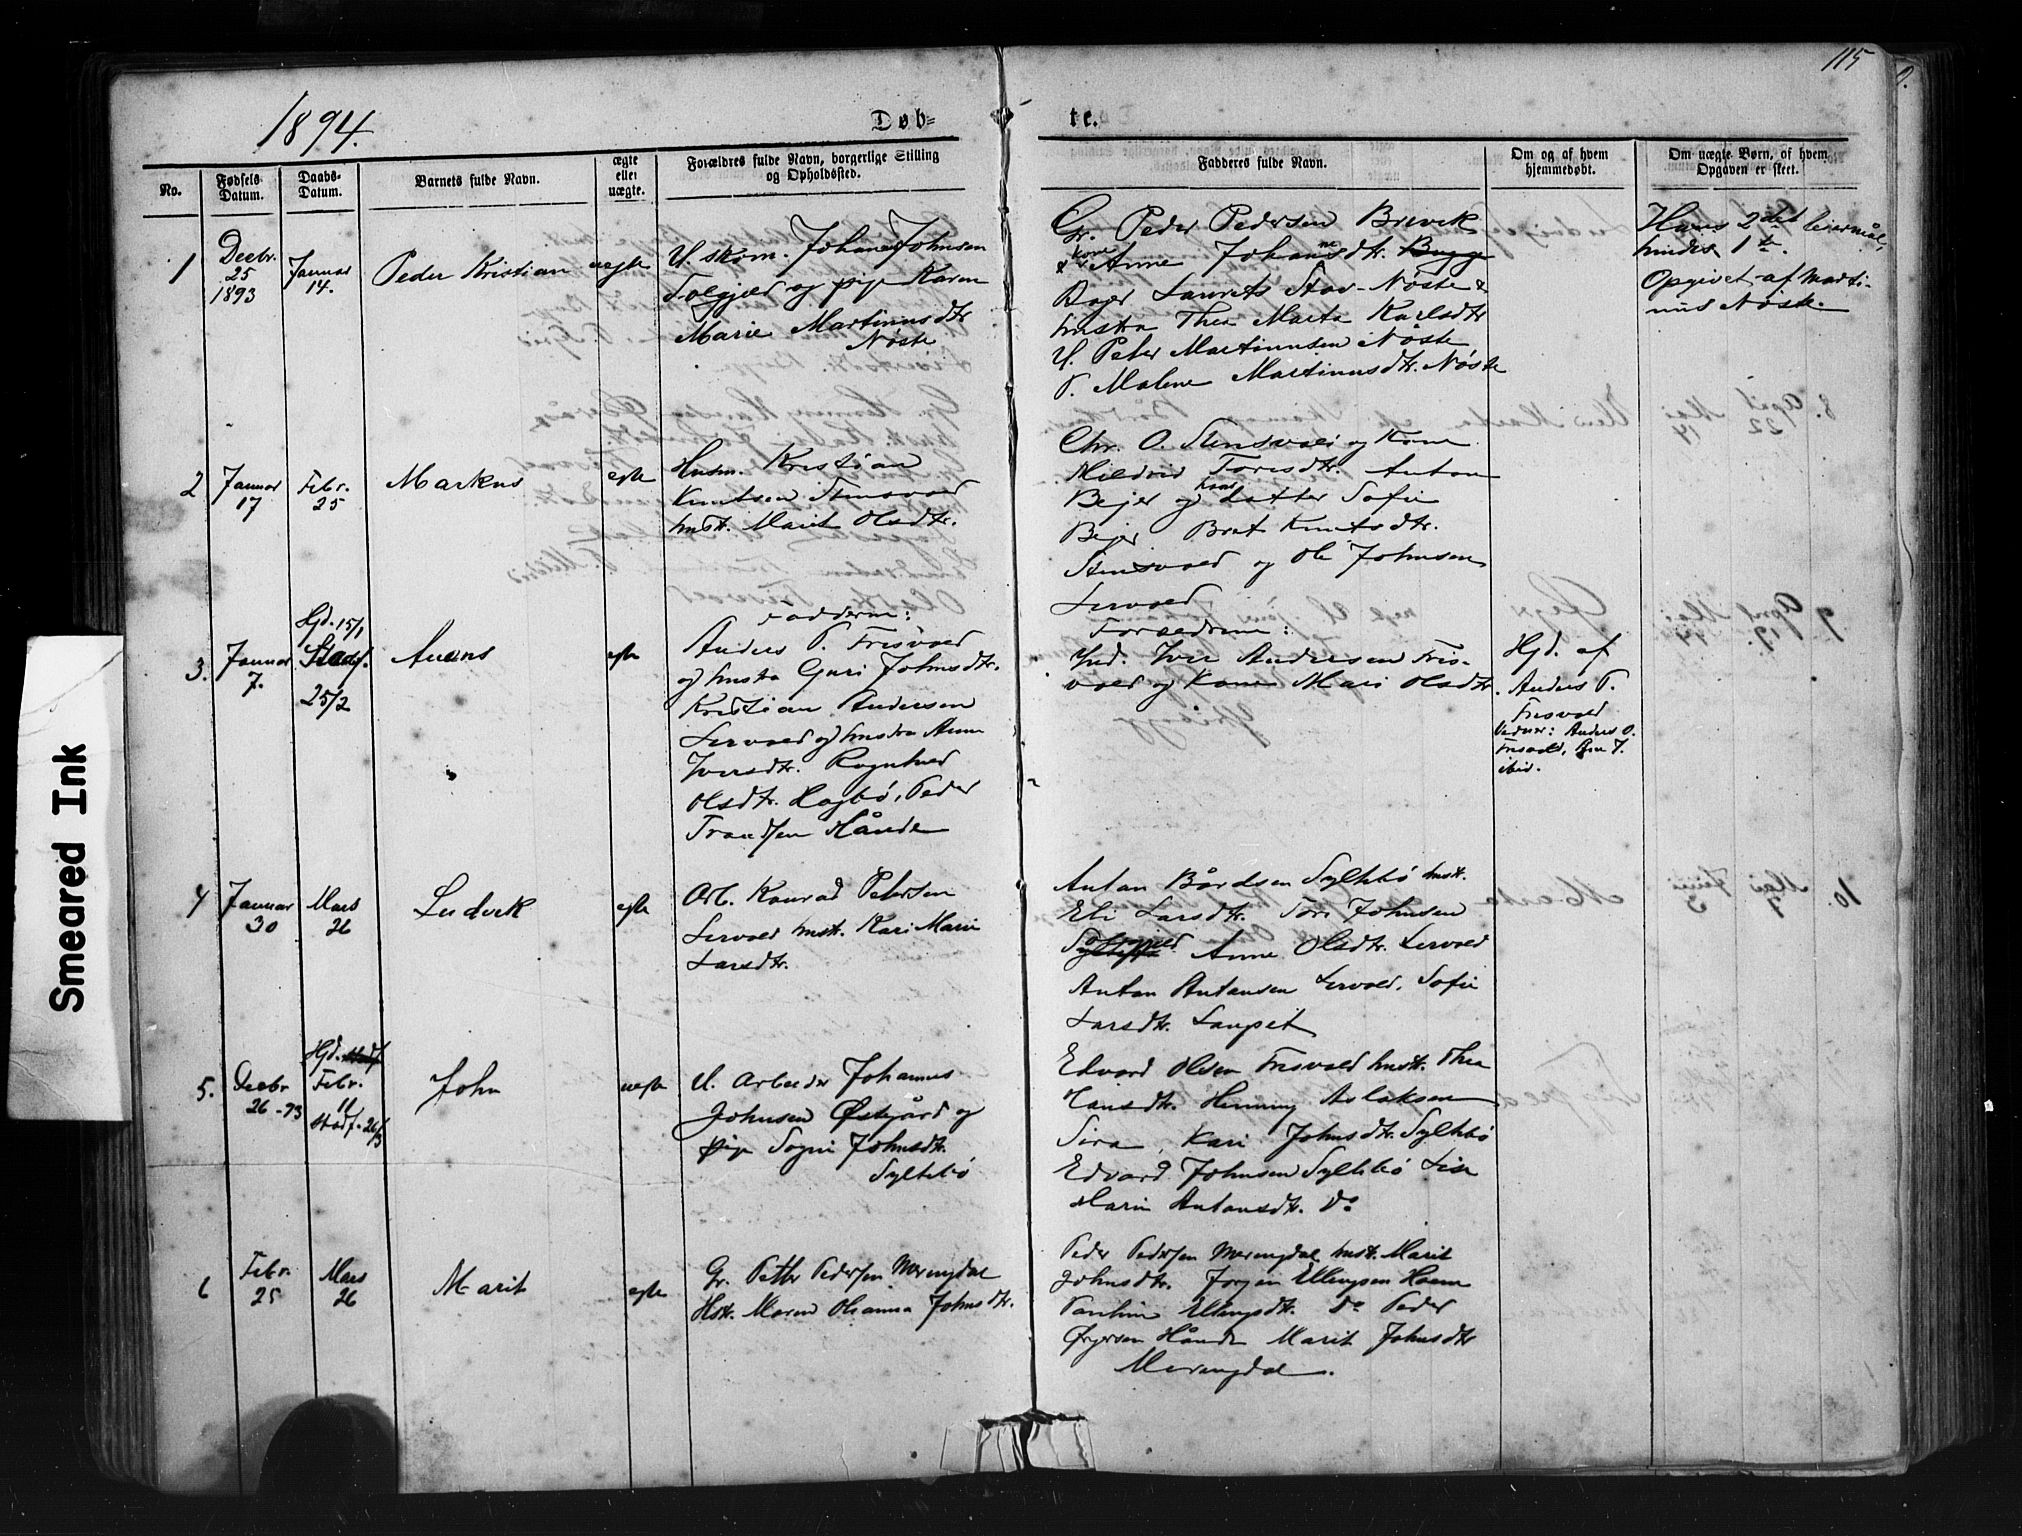 115
1894.
Døb-
te.
No.
Fødsels
Datum.
Daabs-
Datum.
Barnets fulde Navn.
ægte
eller
uægte.
Forældres fulde Navn, borgerlige Stilling
og Opholdssted.
Fadderes fulde Navn.
Om og af hvem
hjemmedøbt.
Om uægte Børn, af hvem
Opgaven er skeet.
1
Decbr.
25
1893
Januar
14.
Peder Kristian
uegte
U. skom. Johannes Johnsen
Solgjeld og pige Karen
Marie Martinusdtr.
Nøste
Gr. Peder Pedersen Brevik
& kone Anne Johansdtr. Bugge
Bager Laurits Stav-Nøste &
hustru Thea Marta Karlsdtr
U. Peter Martinussen Nøste
P. Malene Martinusdtr. Nøste
Hans 2det leiermål,
hendes 1te.
Opgivet af Marti-
nus Nøste.
2
Januar
17
Febr.
25
Markus
egte
Husm. Kristian
Knutsen Stensvold
hust. Marit Olsdtr.
Chr. O. Stensvold og Kone
Mildrid Toresdtr. Anton
Bejer og hans datter Sofie
Bejer Brat Knutsdtr.
Stensvold og Ole Johnsen
Lervold
3.
Januar
7.
Hjd. 15/1
Stadf.
25/2
Anens
egte
Fadderne:
Anders P. Frisvold
og hustru Guri Johnsdtr.
Kristian Andersen
Lervold og hustru Anne
Iversdtr. Rognhild
Olsdtr. Hagbø, Peder
Trondsen Hånde
Forældrene:
Ind. Iver Andersen Fris-
vold og Kone Mari Olsdtr.
Hjd. af
Anders P.
Frisvold
Vidner: Anders O.
Frisvold, J.
ibid.
4
Januar
30
Mars
26
Ludvik
egte
Arb. Konrad Petersen
Lervold hust. Kari Marie
Larsdtr.
Anton Bårdsen Syltebø hust.
Eli Larsdtr. Tore Johnsen
Solgjeld Anne Olsdtr. Lervold
Anton Antonsen Lervold, Sofie
Larsdtr. Laupet
5.
Decbr
26-93
Hjd. stadf
Febr.
11
Stadf. 26/3
John
uegte
U. Arbeider Johannes
Johnsen Østigård og
Pige Sogni Johnsdtr.
Syltebø
Edvard Olsen Frisvold hust. Thea
Hansdtr. Henning Aslaksen
Sira, Kari Johnsdtr. Syltebø
Edvard Johnsen Syltebø Lise
Marie Antonsdtr. Do
6
Febr.
25
Mars
26
Marit
egte
Gr. Petter Pedersen Meringdal
Hst. Maren Olianna Johnsdtr.
Peder Pedersen Meringdal hust. Marit
Johnsdtr. Jørgen Ellingsen Hoem
Pauline Ellingsdtr. Do Peder
Ørgersen Hånde Marit Johnsdtr
Meringdal.
Smeared Ink